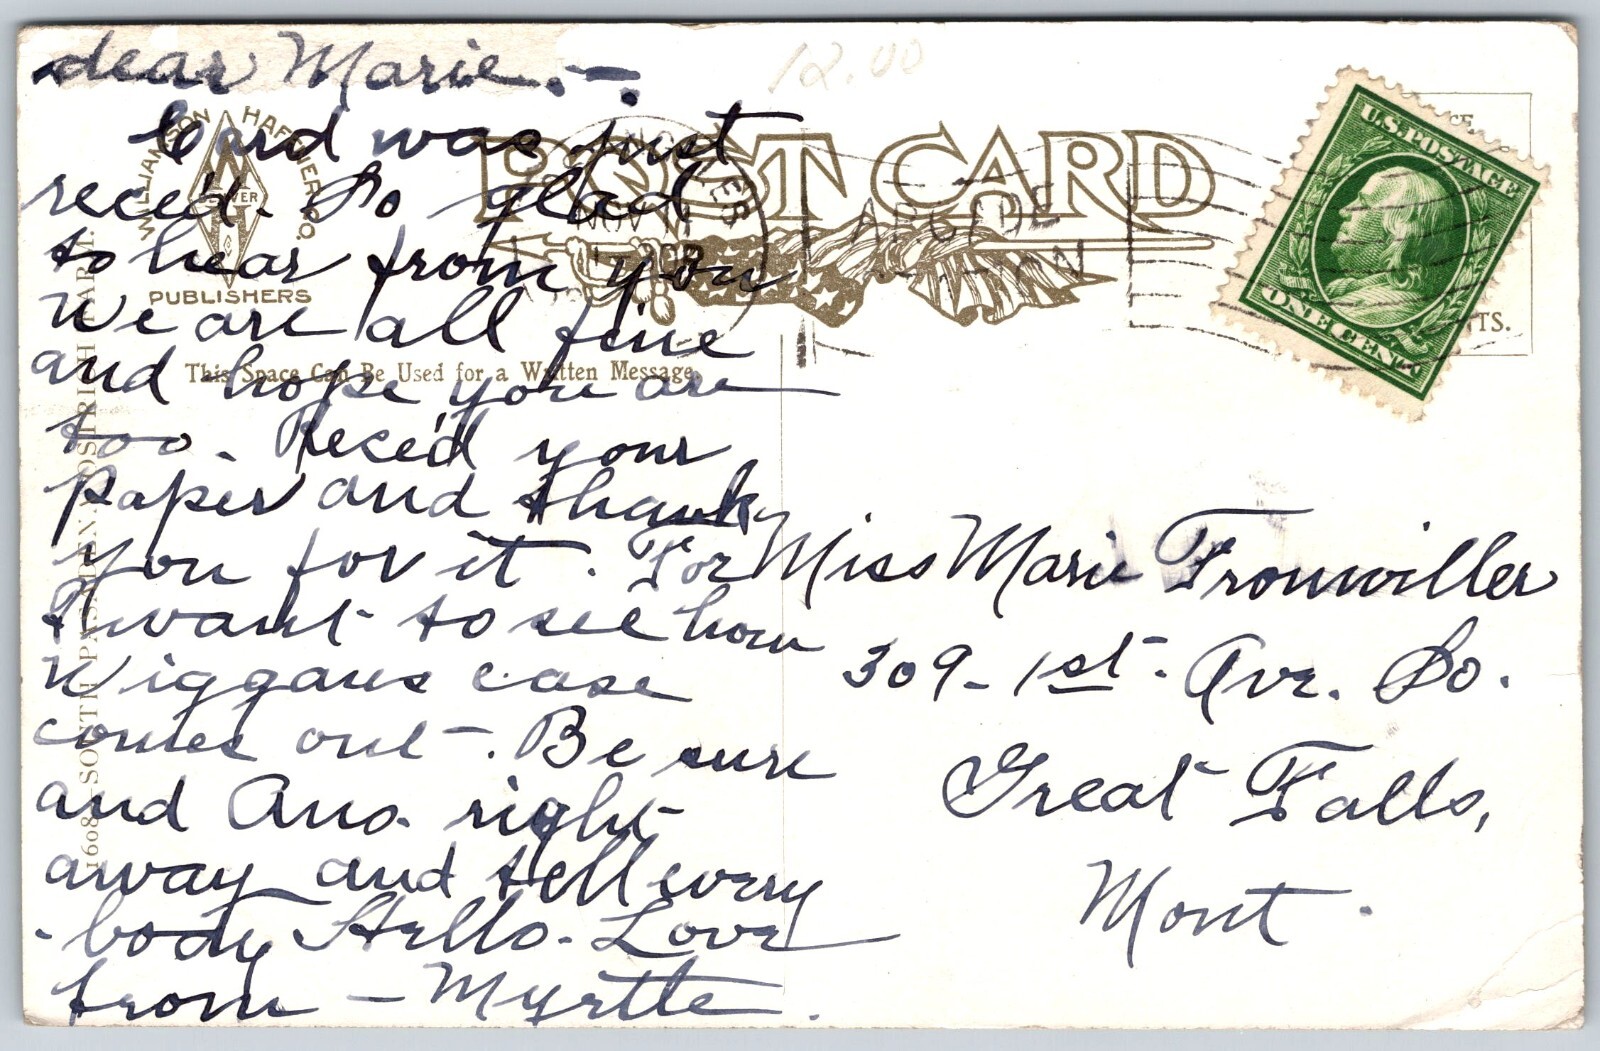 dear Marie.—
Card was just
rece'd. So glad
to hear from you
We are all fine
and hope you are
too. Rece'd your
paper and thank
you for it. For
I want to see how
Wiggans case
comes out. Be sure
and Ans. right
away and tell every
-body Hello. Love
from — Myrtle.
12.00
POST CARD
This Space Can Be Used for a Written Message.
WILLIAMSON HAFFNER CO.
DENVER
PUBLISHERS
1608—SOUTH PASADENA OSTRICH FARM.
NOV
ARCADE
STATION
U.S. POSTAGE
ONE CENT
TS.
Miss Marie Fronwiller
309 - 1st. Ave. So.
Great Falls,
Mont.